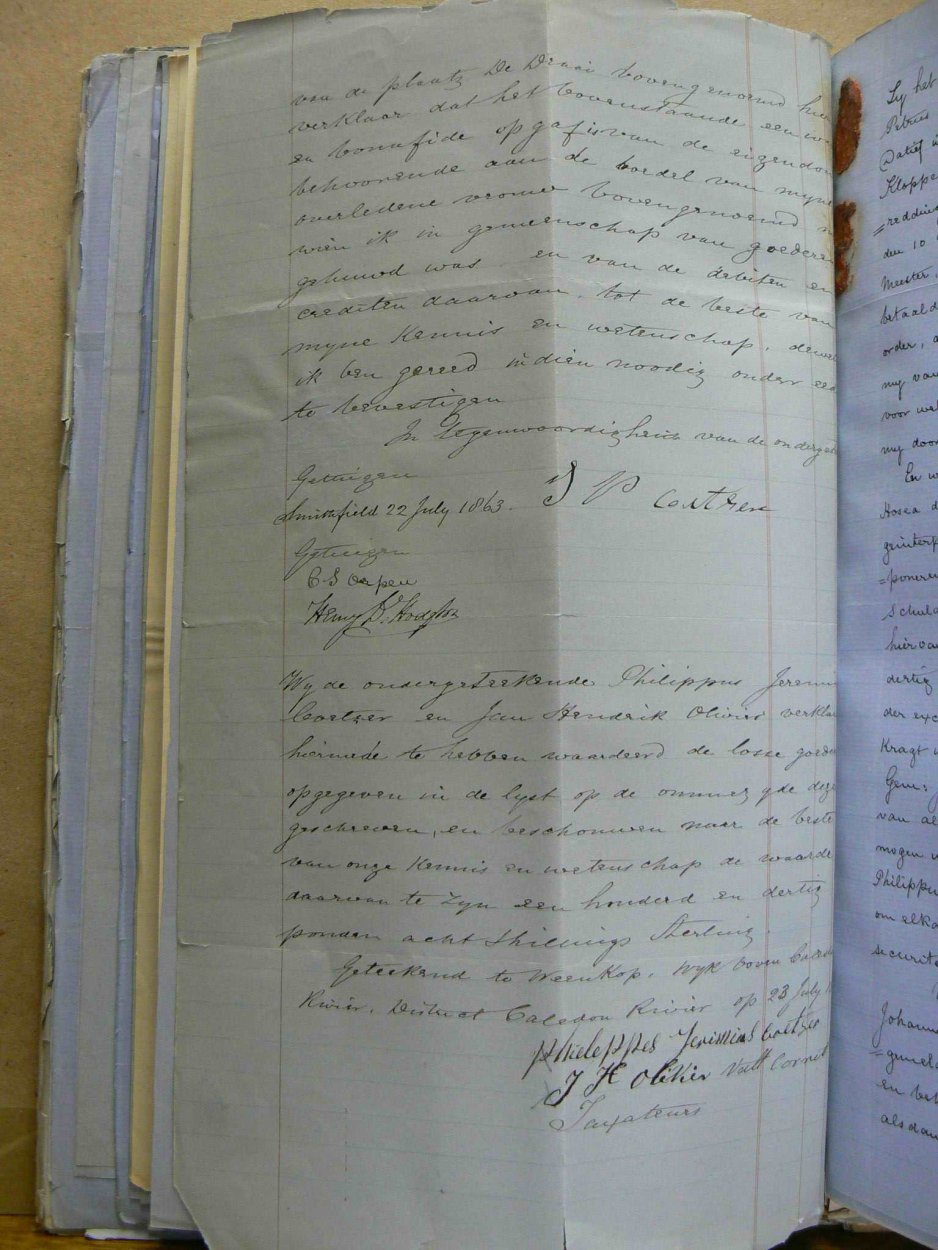 van de plaatz De Draai bovengenoemd hier
verklaar dat het bovenstaande een
en bonafide opgaf is van de eigendom
behoorende aan de boedel van myne
overledene vrouw bovengenoemd
wien ik in gemeenschap van goederen
gehuwd was en van de debiten en
crediten daarvan, tot de beste van
myne Kennis en wetenschap, dewel
ik ben gereed indien noodig onder eed
te bevestigen
In tegenwoordigheid van de onderget
Getuigen
Smithfield 22 July 1863.
P Coetzee
Getuigen
C S Orpen
Henry B. Hodgson
Wy de ondergeteekende Philippus Jeremi
Coetzer en Jan Hendrik Olivier verkla
hiermede te hebben waardeerd de losse goed
opgegeven in de lyst op de ommez yde deze
geschreven, en beschouwen naar de beste
van onze Kennis en wetenschap de waarde
daarvan te zyn een honderd en dertig
ponden acht Shillings Sterling.
Geteekend te Weenkop, Wyk boven Caledon
Rivier, District Caledon Rivier op 23 July
Phieleppes Jerimias Coetzee
J H Olivier Veld Cornet
Taxateurs
Sy het
Petrus
Datief
Kloppe
=reddin
den 10
Meester
betaald
order,
my van
voor wel
my door
En w
Hosea d
geinterp
=poneren
Schuld
hiervan
dertig
der exc
Kragt
Gem:
van al
mogen
Philippu
om elka
securite
Johann
en bet
als dan